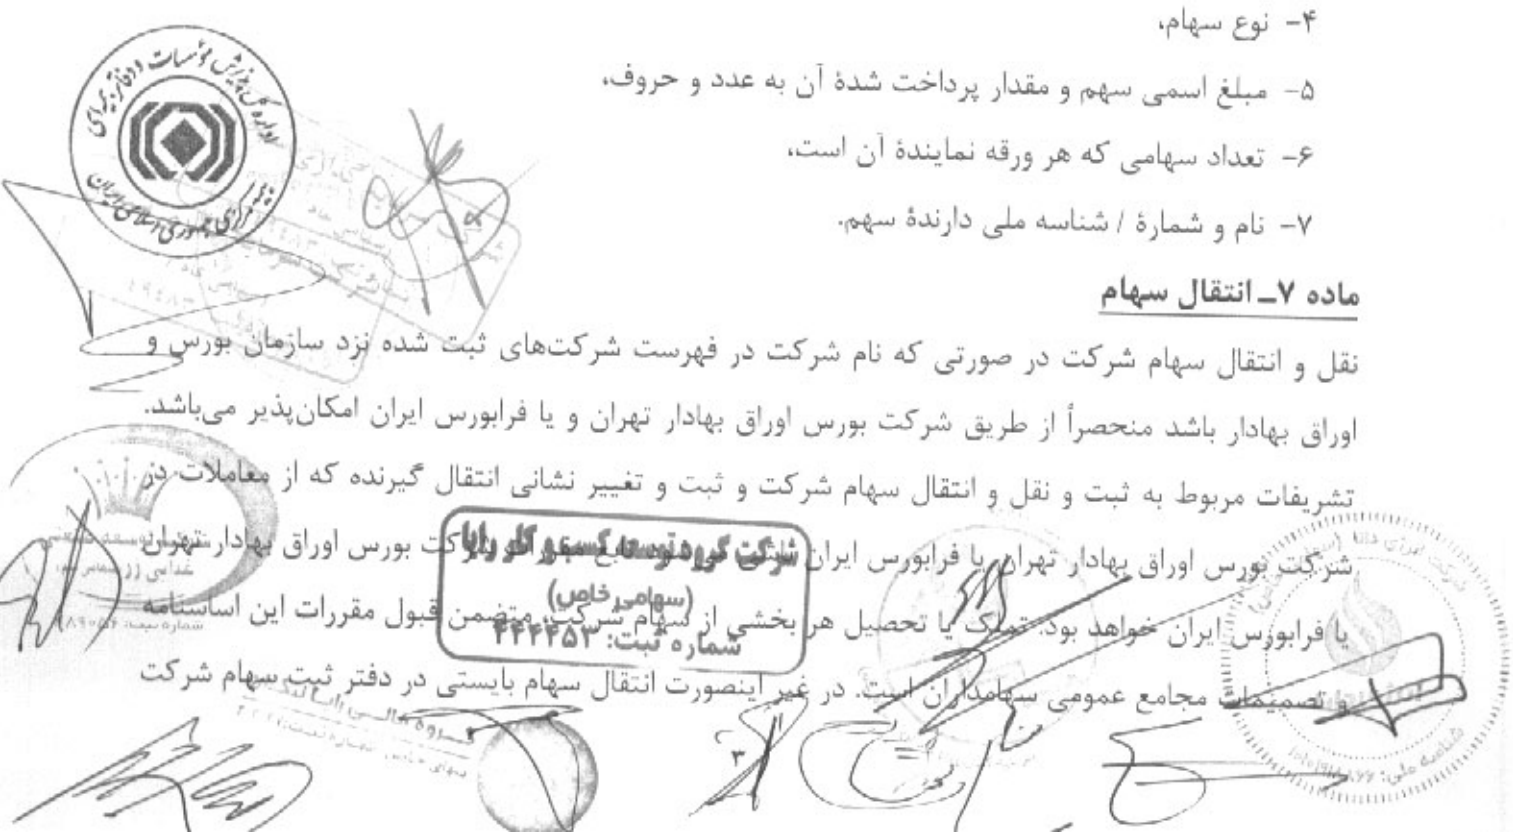 ۴- نوع سهام،
۵- مبلغ اسمی سهم و مقدار پرداخت شدهٔ آن به عدد و حروف،
۶- تعداد سهامی که هر ورقه نمایندهٔ آن است،
۷- نام و شمارهٔ / شناسه ملی دارندهٔ سهم.
ماده ۷ـ انتقال سهام
نقل و انتقال سهام شرکت در صورتی که نام شرکت در فهرست شرکت‌های ثبت شده نزد سازمان بورس و
اوراق بهادار باشد منحصراً از طریق شرکت بورس اوراق بهادار تهران و یا فرابورس ایران امکان‌پذیر می‌باشد.
تشریفات مربوط به ثبت و نقل و انتقال سهام شرکت و ثبت و تغییر نشانی انتقال گیرنده که از معاملات در
شرکت بورس اوراق بهادار تهران یا فرابورس ایران ناشی می شود تابع مقررات شرکت بورس اوراق بهادار تهران
یا فرابورس ایران خواهد بود. تملک یا تحصیل هر بخشی از سهام شرکت، متضمن قبول مقررات این اساسنامه
و تصمیمات مجامع عمومی سهامداران است. در غیر اینصورت انتقال سهام بایستی در دفتر ثبت سهام شرکت
۳
اداره کل پذیرش مؤسسات و دفاتر بیمه‌ای
مرکزی جمهوری اسلامی ایران
شرکت گروه توسعه کسب و کار
(سهامی خاص)
شماره ثبت: ۴۴۴۴۵۳
شرکت انرژی دانا
شناسه ملی:
غذایی زر
شماره ثبت:
گروه مالی